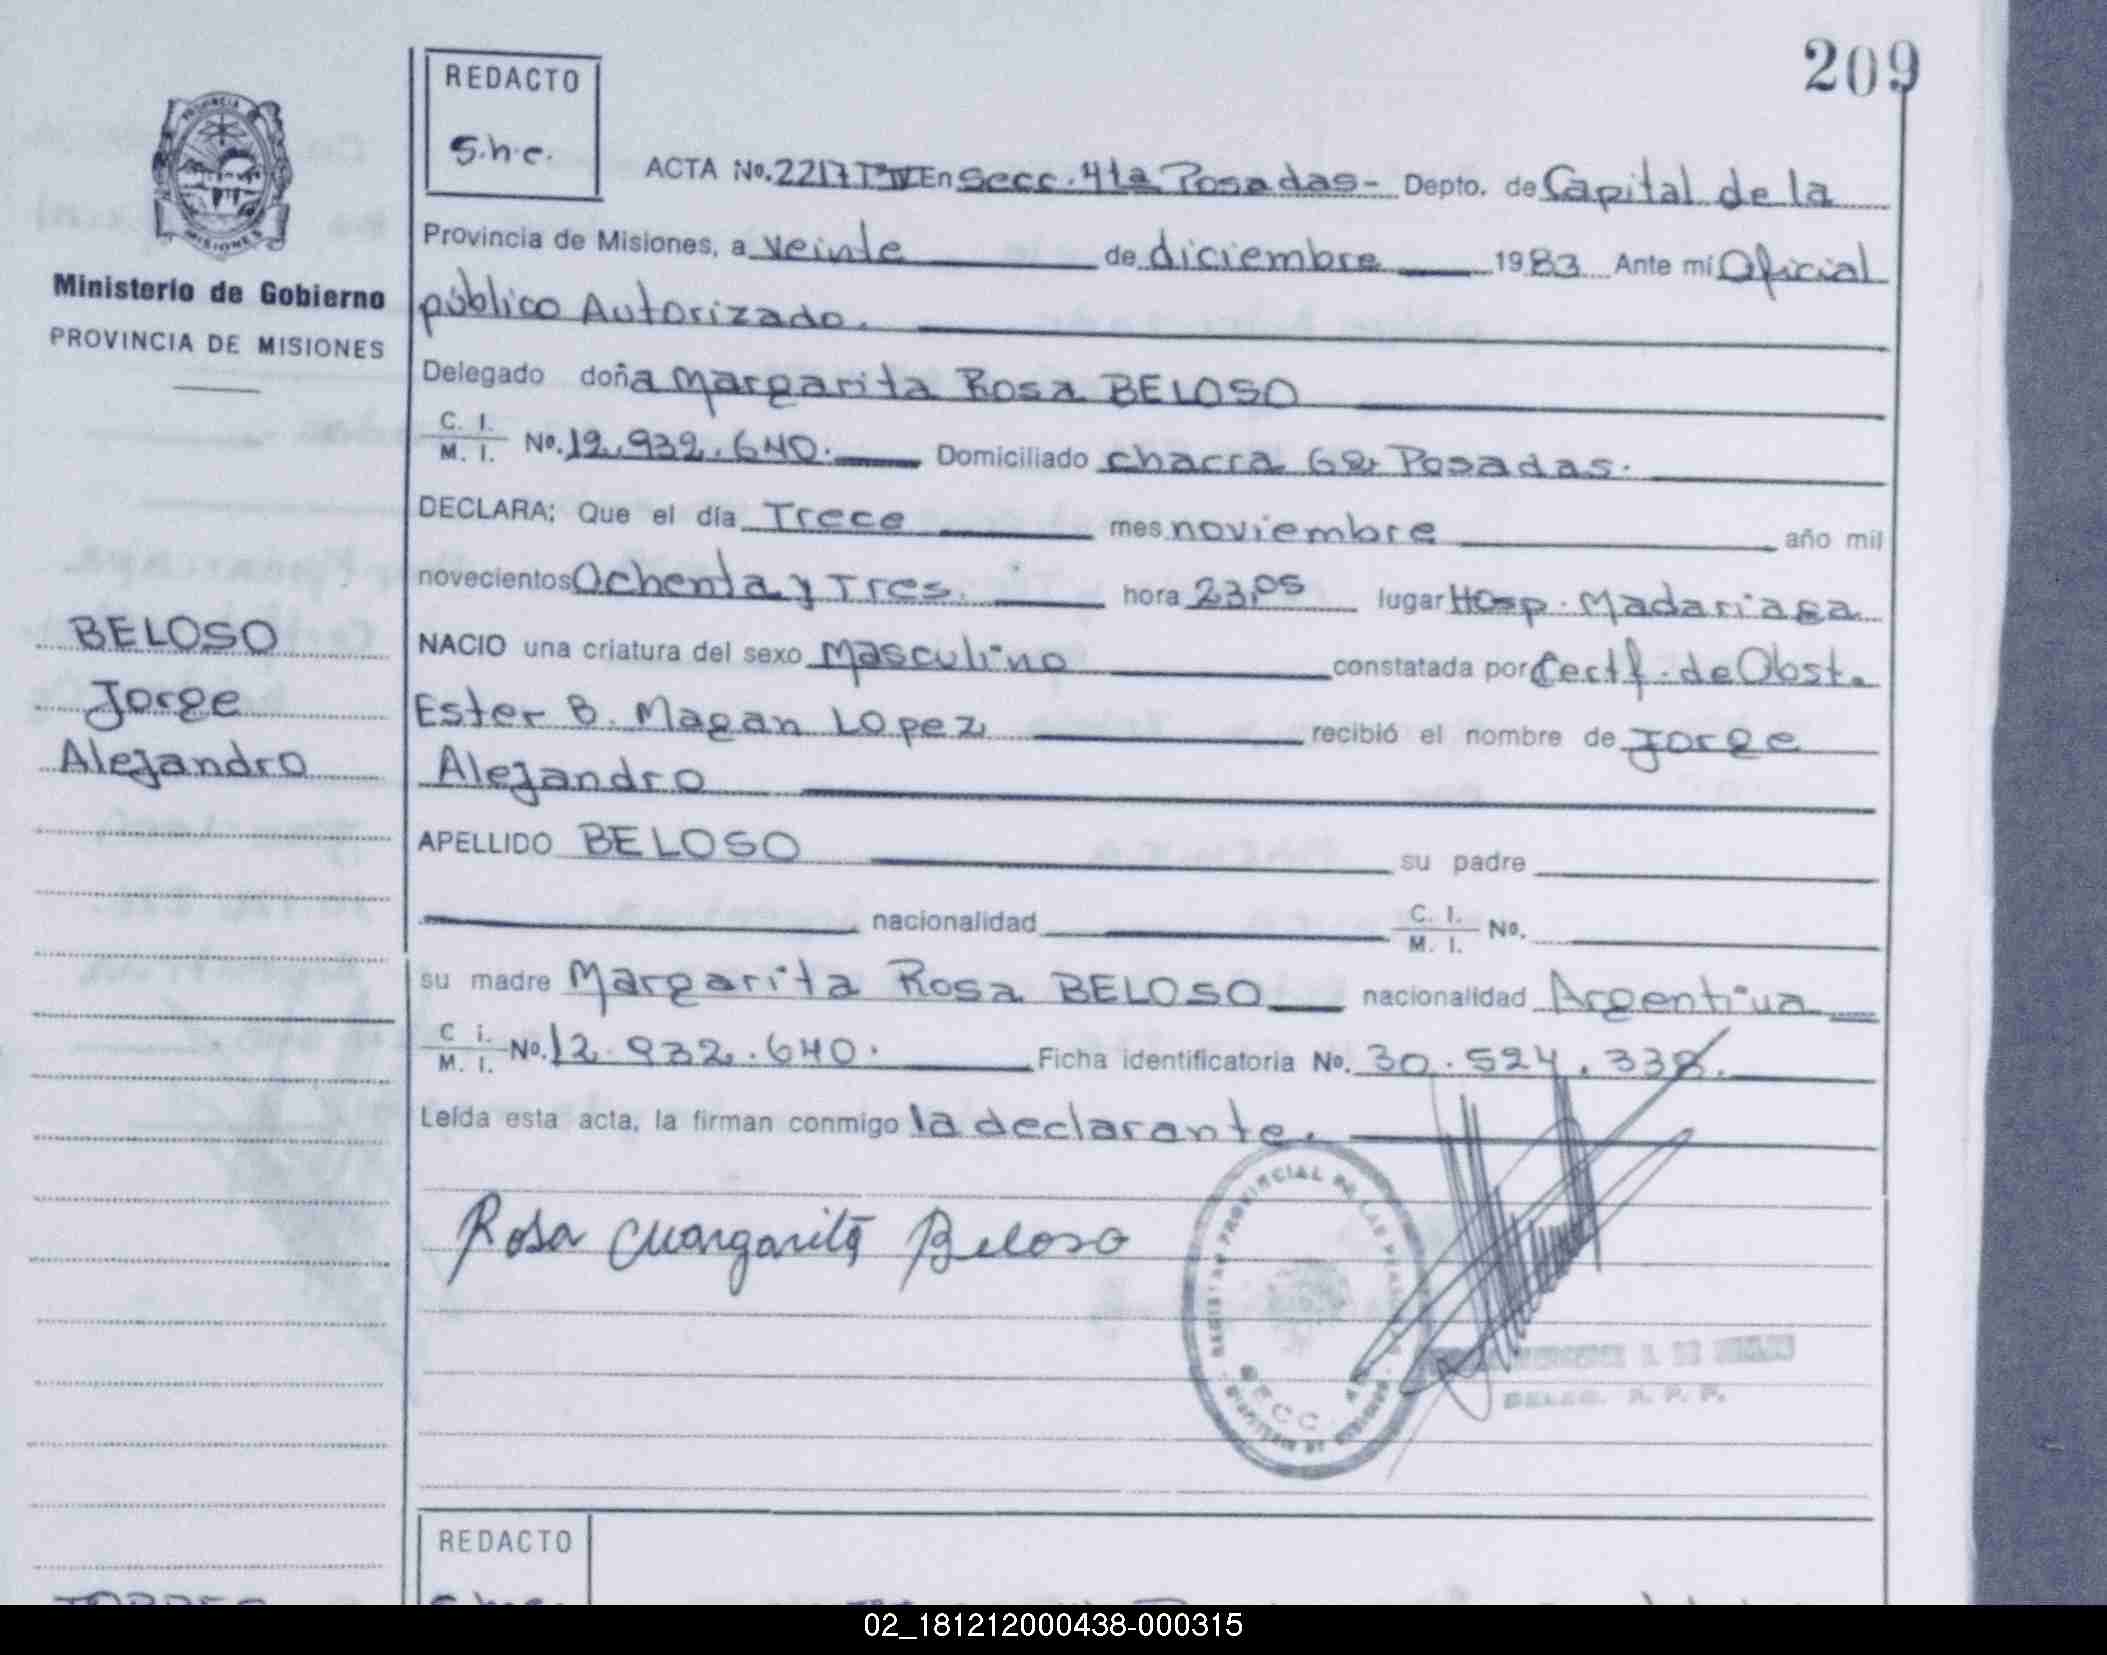 209
REDACTO
S.h.c.
ACTA No. 2217 TºIV En Secc. 4ta Posadas- Depto. de Capital de la
Provincia de Misiones, a veinte de diciembre 1983 Ante mi Oficial
público Autorizado.
Delegado doña Margarita Rosa BELOSO
C. I.
M. I. No. 12.932.640. Domiciliado chacra 62 Posadas.
DECLARA: Que el día Trece mes noviembre año mil
novecientos Ochenta y Tres. hora 23,05 lugar Hosp. Madariaga
NACIO una criatura del sexo Masculino constatada por Certf. de Obst.
Ester B. Magan Lopez recibió el nombre de Jorge
Alejandro
APELLIDO BELOSO su padre
nacionalidad C. I.
M. I. No.
su madre Margarita Rosa BELOSO nacionalidad Argentina
C i.
M. I. No. 12.932.640. Ficha identificatoria No. 30.524.338.
Leída esta acta, la firman conmigo la declarante.
Rosa Margarita Beloso
PROVINCIA
MISIONES
Ministerio de Gobierno
PROVINCIA DE MISIONES
BELOSO
Jorge
Alejandro
REGISTRO PROVINCIAL DE LAS PERSONAS
SECC. 4ta
DELEG. R. P. P.
REDACTO
02_181212000438-000315